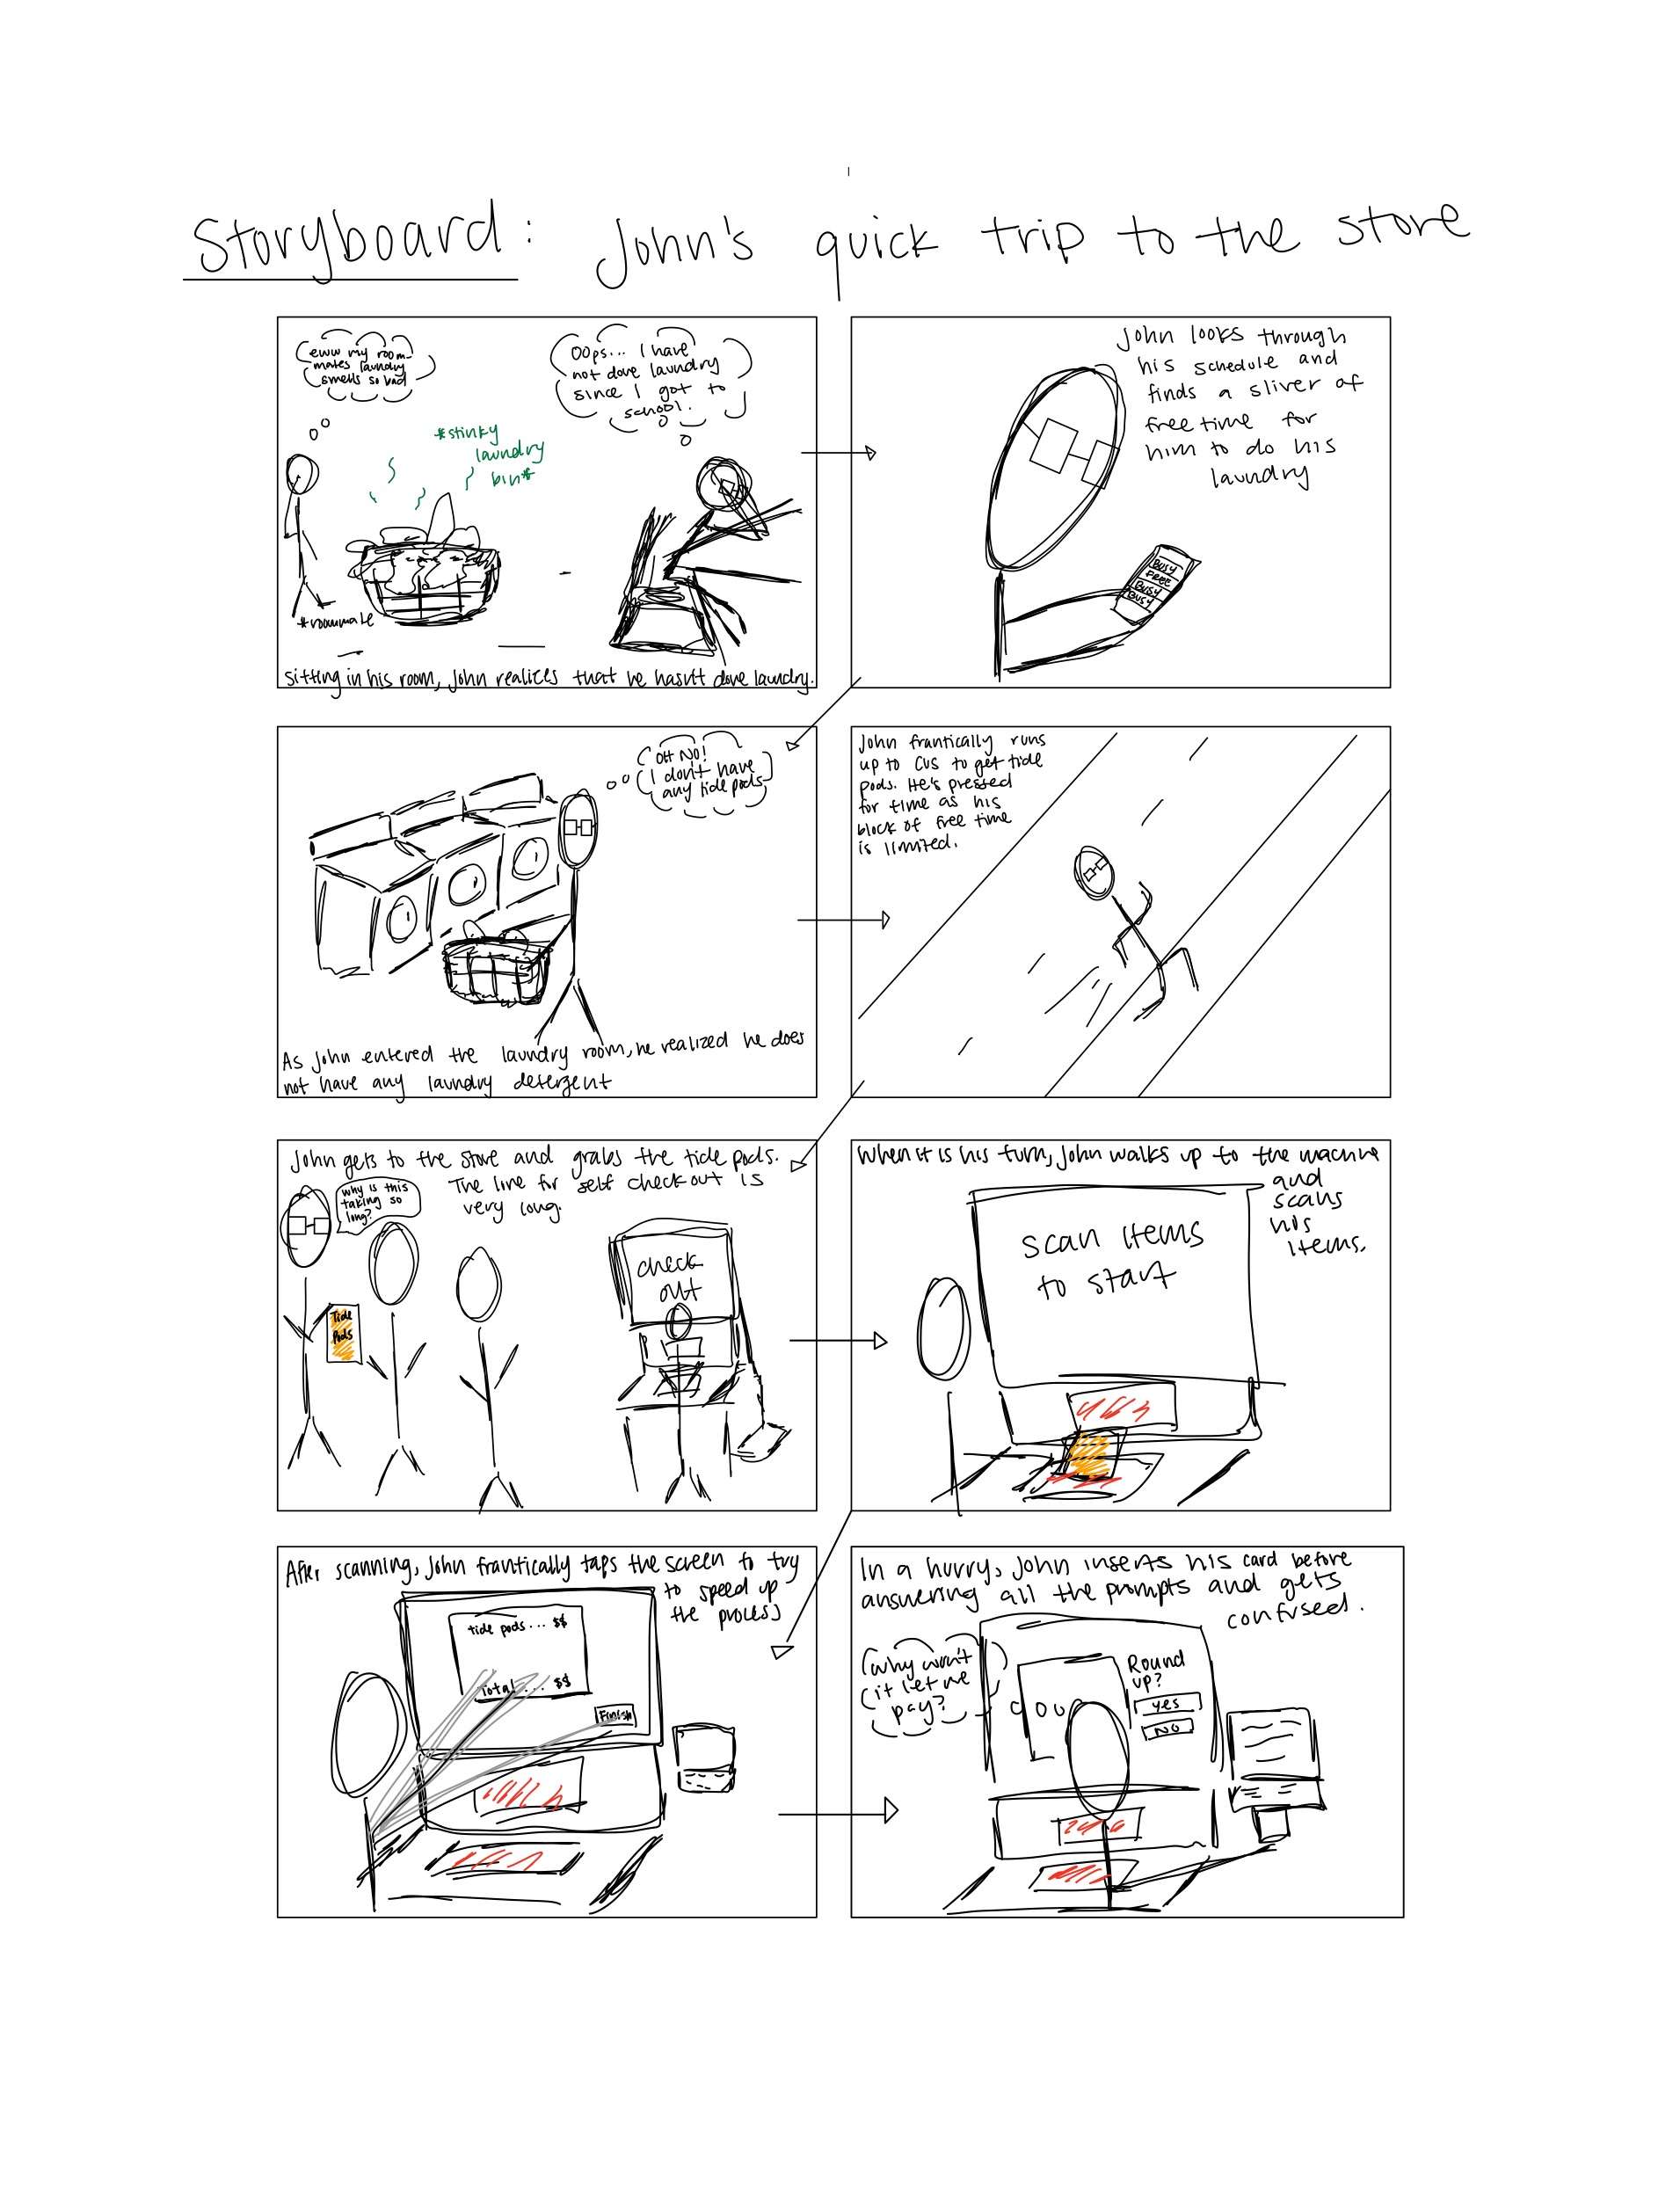 Storyboard: John's quick trip to the store
eww my room-
mates laundry
smells so bad
Oops... I have
not done laundry
since I got to
school.
*stinky
laundry
bin*
*roommate
Sitting in his room, John realizes that he hasn't done laundry.
John looks through
his schedule and
finds a sliver of
free time for
him to do his
laundry
BUSY
FREE
BUSY
BUSY
OH NO!
I don't have
any tide pods
As John entered the laundry room, he realized he does
not have any laundry detergent
John frantically runs
up to CVS to get tide
pods. He's pressed
for time as his
block of free time
is limited.
John gets to the store and grabs the tide pods.
The line for self checkout is
very long.
why is this
taking so
long?
Tide
Pods
check
out
When it is his turn, John walks up to the machine
and
scans
his
items.
scan items
to start
After scanning, John frantically taps the screen to try
to speed up
the process
tide pods... $$
Total... $$
Finish
In a hurry, John inserts his card before
answering all the prompts and gets
confused.
why won't
it let me
pay?
Round
up?
yes
NO